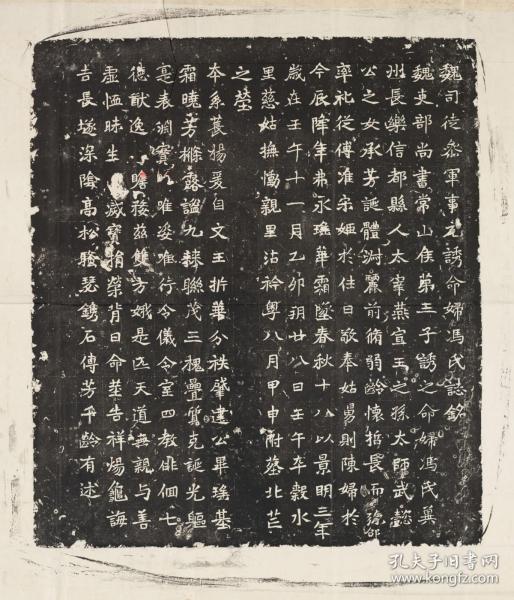 魏司徒參軍事元誘命婦馮氏誌銘
魏吏部尚書常山侯第三子誘之命婦馮氏冀
州長樂信都縣人太宰燕宣王之孫太師武懿
公之女承芳誕體淵麗前脩弱齡懷哲長而彌邵
率禮從傅准宋姬於往日敬奉姑舅則陳婦於
今辰降年弗永璚華霜墜春秋十八以景明三年
歲在壬午十一月乙卯朔廿八日壬午卒穀水
里慈姑撫慟親里沾衿粵八月甲申附塟北芒
之塋
本系萇楊爰自文王折華分祑肇建公畢瑤基
霜曉芳檖露謐九棘聯茂三槐疊質克誕光軀
寔表淵賓唯姿唯行令儀令室四教俳佪七
德猷逸瞻接茲雙芳娥是匹天道無親与善
虛恤昧生滅寶褕榮背日命塟告祥焬龜誨
吉長埏深陰高松騷瑟鐫石傳芳千齡有述
孔夫子旧书网
www.kongfz.com